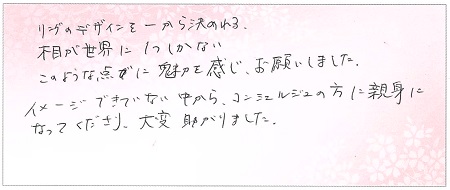 リングのデザインを一から決めれる、
相が世界に1つしかない
このような点がに魅力を感じ、お願いしました。
イメージできていない中から、コンシェルジュの方に親身に
なってくださり、大変助かりました。